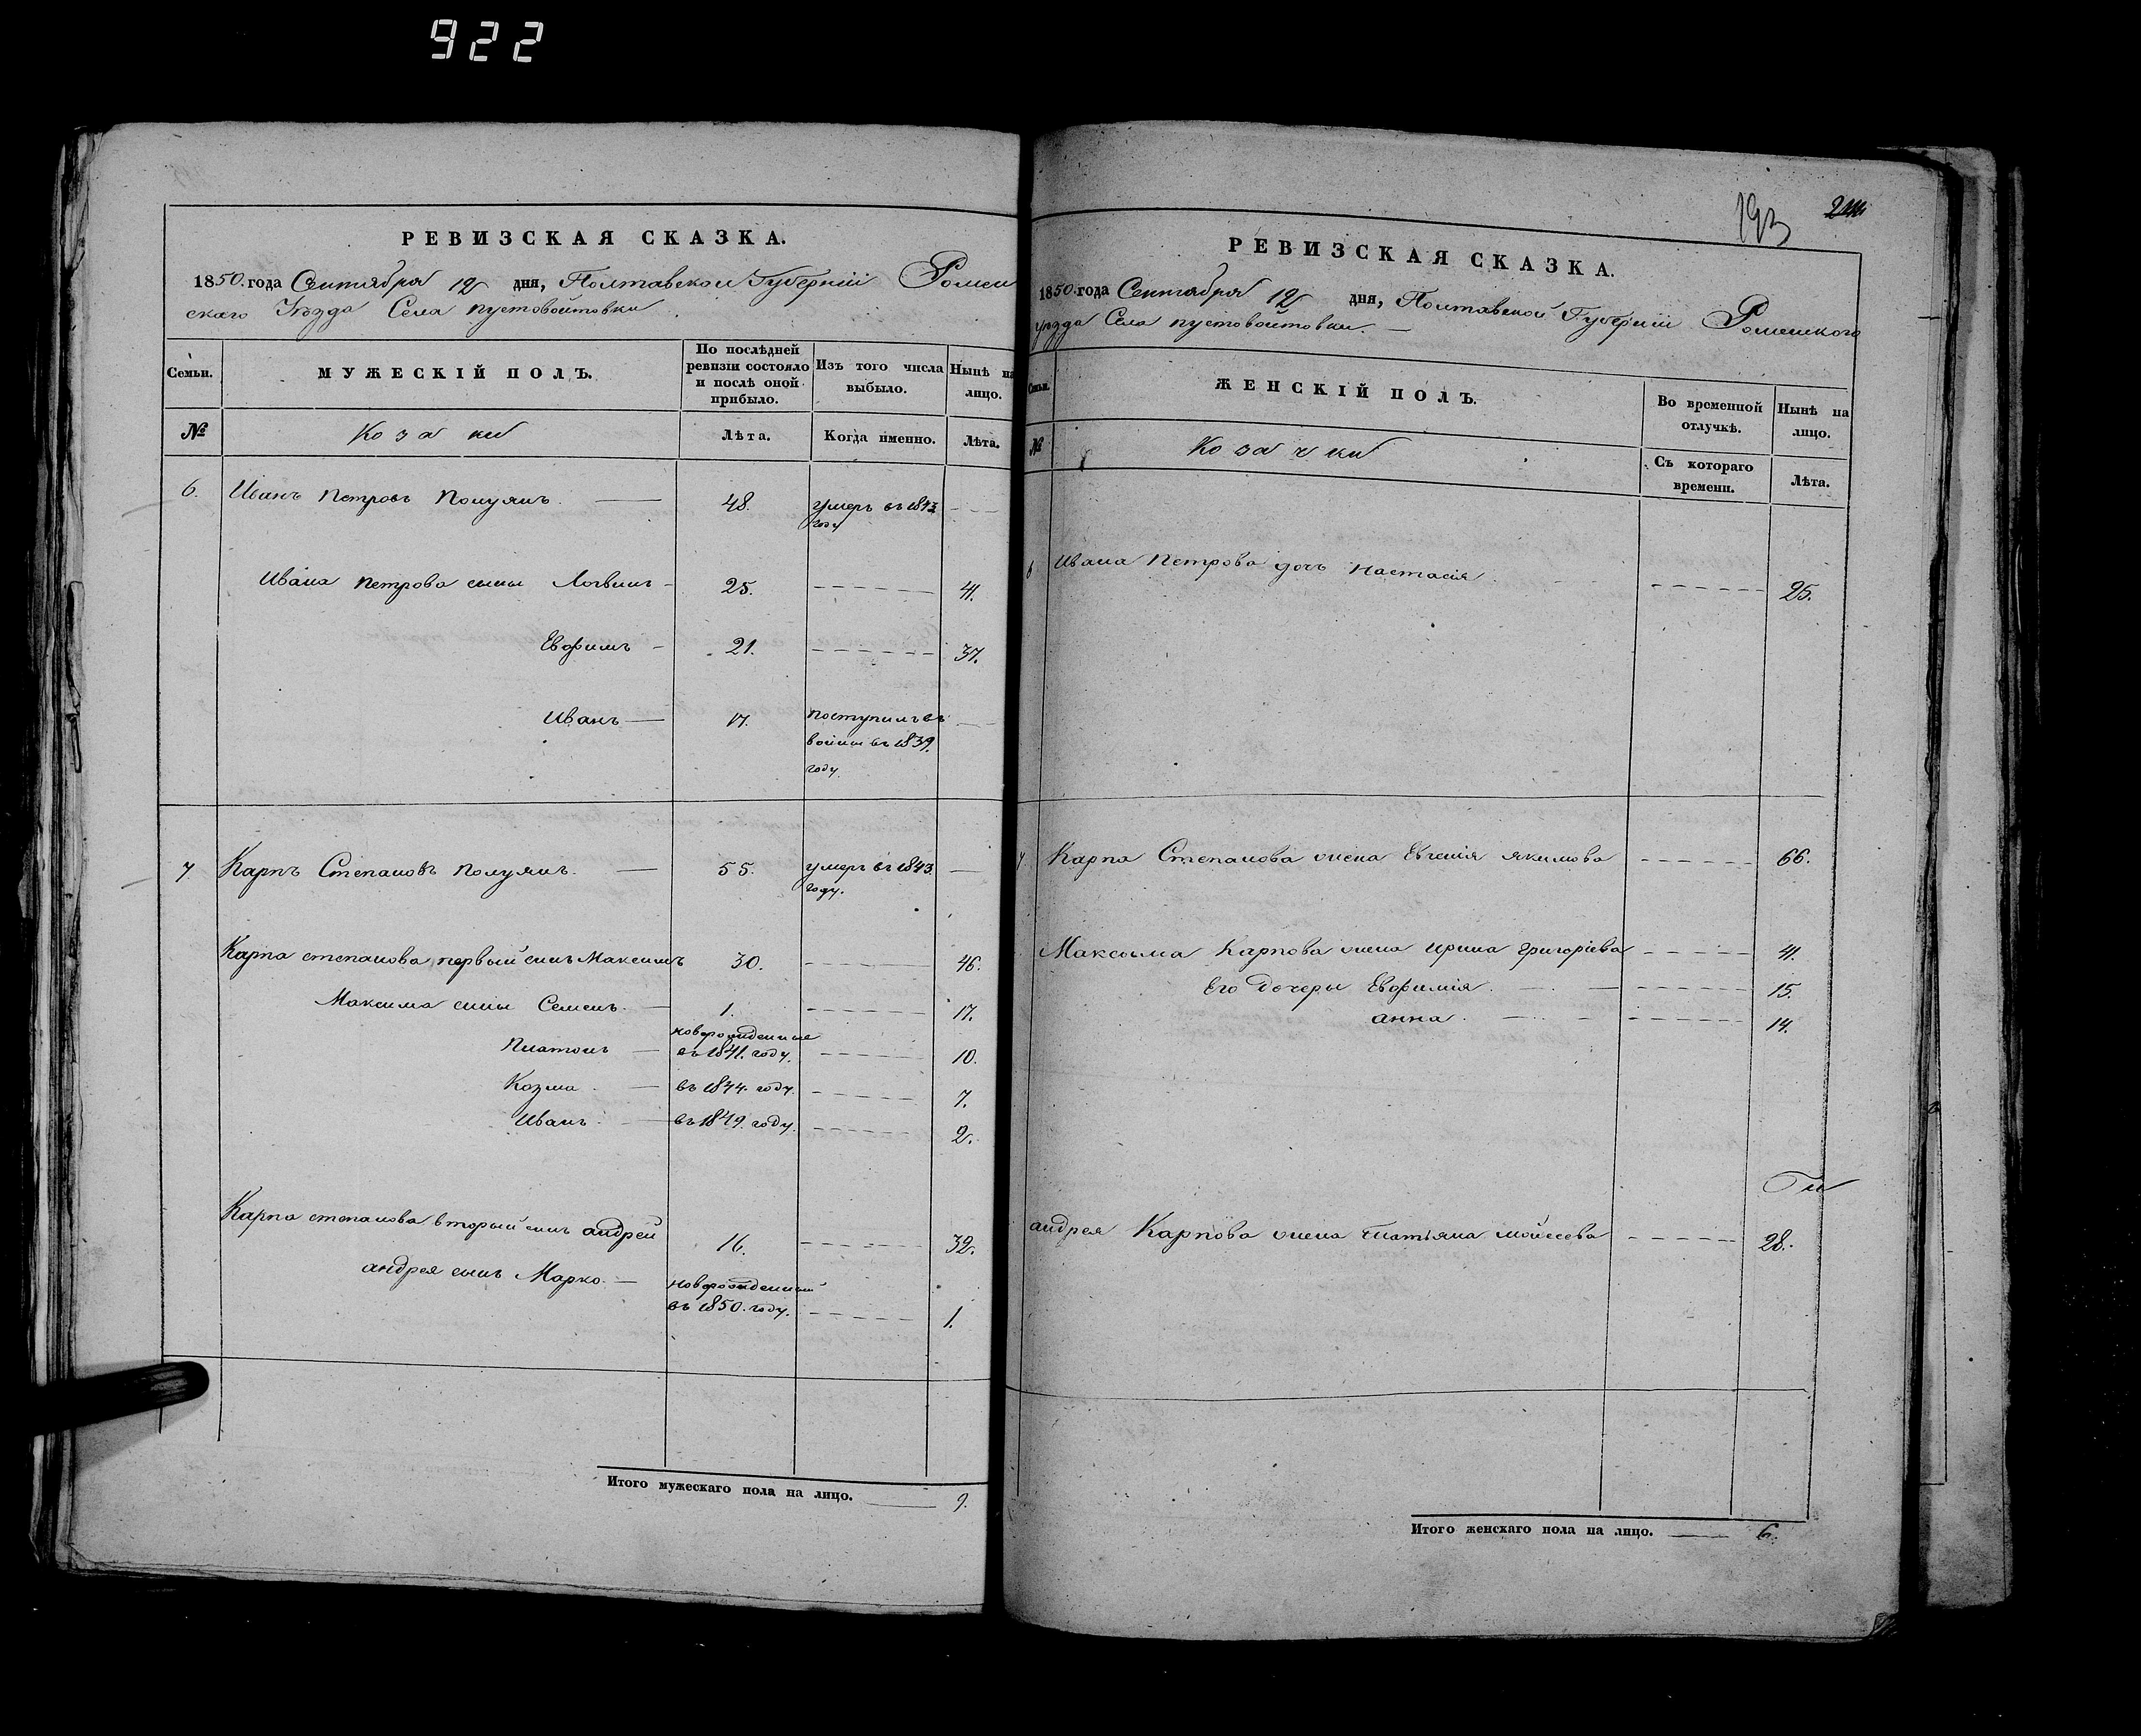 922
РЕВИЗСКАЯ СКАЗКА.
1850. года Сентября 12 дня, Полтавской Губернїи Ромен
скаго Уѣзда Села пустовойтовки
Семьи. МУЖЕСКІЙ ПОЛЪ. По послѣдней ревизіи состояло и послѣ оной прибыло. Изъ того числа выбыло. Нынѣ на лицо.
№ Козаки Лѣта. Когда именно. Лѣта.
6. Иванъ Петровъ Полуянъ. 48. умеръ въ 1843
году
Ивана Петрова сыны Логвинъ 25. 41.
Евфимъ 21. 37.
Иванъ 17. поступилъ въ
воины въ 1839.
году.
7 Карпъ Степановъ Полуянъ. 55. умеръ въ 1843.
году.
Карпа степанова первый сынъ Максимъ 30. 46.
Максима сыны Семенъ. 1. 17.
новорожденные
Платонъ въ 1841. году. 10.
Козма въ 1844. году. 7.
Иванъ въ 1849. году. 2.
Карпа степанова вторый сынъ андрей 16. 32.
андрея сынъ Марко. новорожденный
въ 1850. году. 1.
Итого мужескаго пола на лицо. 9.
193
РЕВИЗСКАЯ СКАЗКА.
1850. года Сентября 12 дня, Полтавской Губернїи Роменского
уезда Села пустовойтовки.
Семьи. ЖЕНСКІЙ ПОЛЪ. Во временной отлучкѣ. Нынѣ на лицо.
№ Козачки Съ котораго времени. Лѣта.
6 Ивана Петрова дочь Настасія 25.
7 Карпа Степанова жена Евгенія якимова 66.
Максима Карпова жена ирина григоріева 41.
Его Дочеры Евфимія 15.
анна 14.
андрея Карпова жена татьяна мойсеева 28.
Итого женскаго пола на лицо. 6.